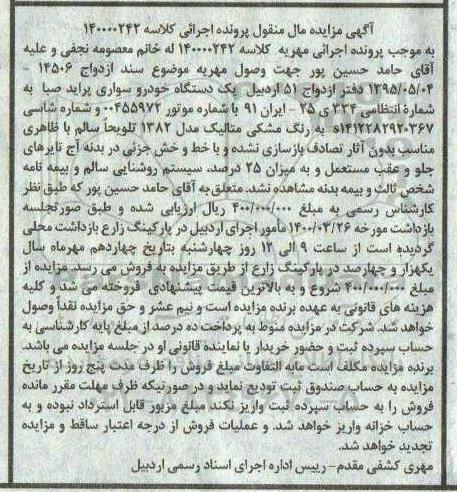 آگهی مزایده مال منقول پرونده اجرائی کلاسه ۱۴۰۰۰۰۲۴۲
به موجب پرونده اجرائی مهریه کلاسه ۱۴۰۰۰۰۲۴۲ له خانم معصومه نجفی و علیه
آقای حامد حسین پور جهت وصول مهریه موضوع سند ازدواج ۱۴۵۰۶ -
۱۳۹۵/۰۵/۰۴ دفتر ازدواج ۵۱ اردبیل یک دستگاه خودرو سواری پراید صبا به
شماره انتظامی ۳۳۴ ی ۲۵ - ایران ۹۱ با شماره موتور ۰۰۴۵۵۹۷۲ و شماره شاسی
s۱۴۱۲۲۸۲۹۲۰۳۶۷ به رنگ مشکی متالیک مدل ۱۳۸۲ تلویحاً سالم با ظاهری
مناسب بدون آثار تصادف بازسازی نشده و با خط و خش جزئی در بدنه آج تایرهای
جلو و عقب مستعمل و به میزان ۲۵ درصد، سیستم روشنایی سالم و بیمه نامه
شخص ثالث و بیمه بدنه مشاهده نشد. متعلق به آقای حامد حسین پور که طبق نظر
کارشناس رسمی به مبلغ ۴۰۰/۰۰۰/۰۰۰ ریال ارزیابی شده و طبق صورتجلسه
بازداشت مورخه ۱۴۰۰/۰۳/۲۶ مأمور اجرای اردبیل در پارکینگ زارع بازداشت محلی
گردیده است از ساعت ۹ الی ۱۲ روز چهارشنبه بتاریخ چهاردهم مهرماه سال
یکهزار و چهارصد در پارکینگ زارع از طریق مزایده به فروش می رسد. مزایده از
مبلغ ۴۰۰/۰۰۰/۰۰۰ شروع و به بالاترین قیمت پیشنهادی فروخته می شد و کلیه
هزینه های قانونی به عهده برنده مزایده است و نیم عشر و حق مزایده نقداً وصول
خواهد شد. شرکت در مزایده منوط به پرداخت ده درصد از مبلغ پایه کارشناسی به
حساب سپرده ثبت و حضور خریدار یا نماینده قانونی او در جلسه مزایده می باشد.
برنده مزایده مکلف است مابه التفاوت مبلغ فروش را ظرف مدت پنج روز از تاریخ
مزایده به حساب صندوق ثبت تودیع نماید و در صورتیکه ظرف مهلت مقرر مانده
فروش را به حساب سپرده ثبت واریز نکند مبلغ مزبور قابل استرداد نبوده و به
حساب خزانه واریز خواهد شد. و عملیات فروش از درجه اعتبار ساقط و مزایده
تجدید خواهد شد.
مهری کشفی مقدم- رییس اداره اجرای اسناد رسمی اردبیل